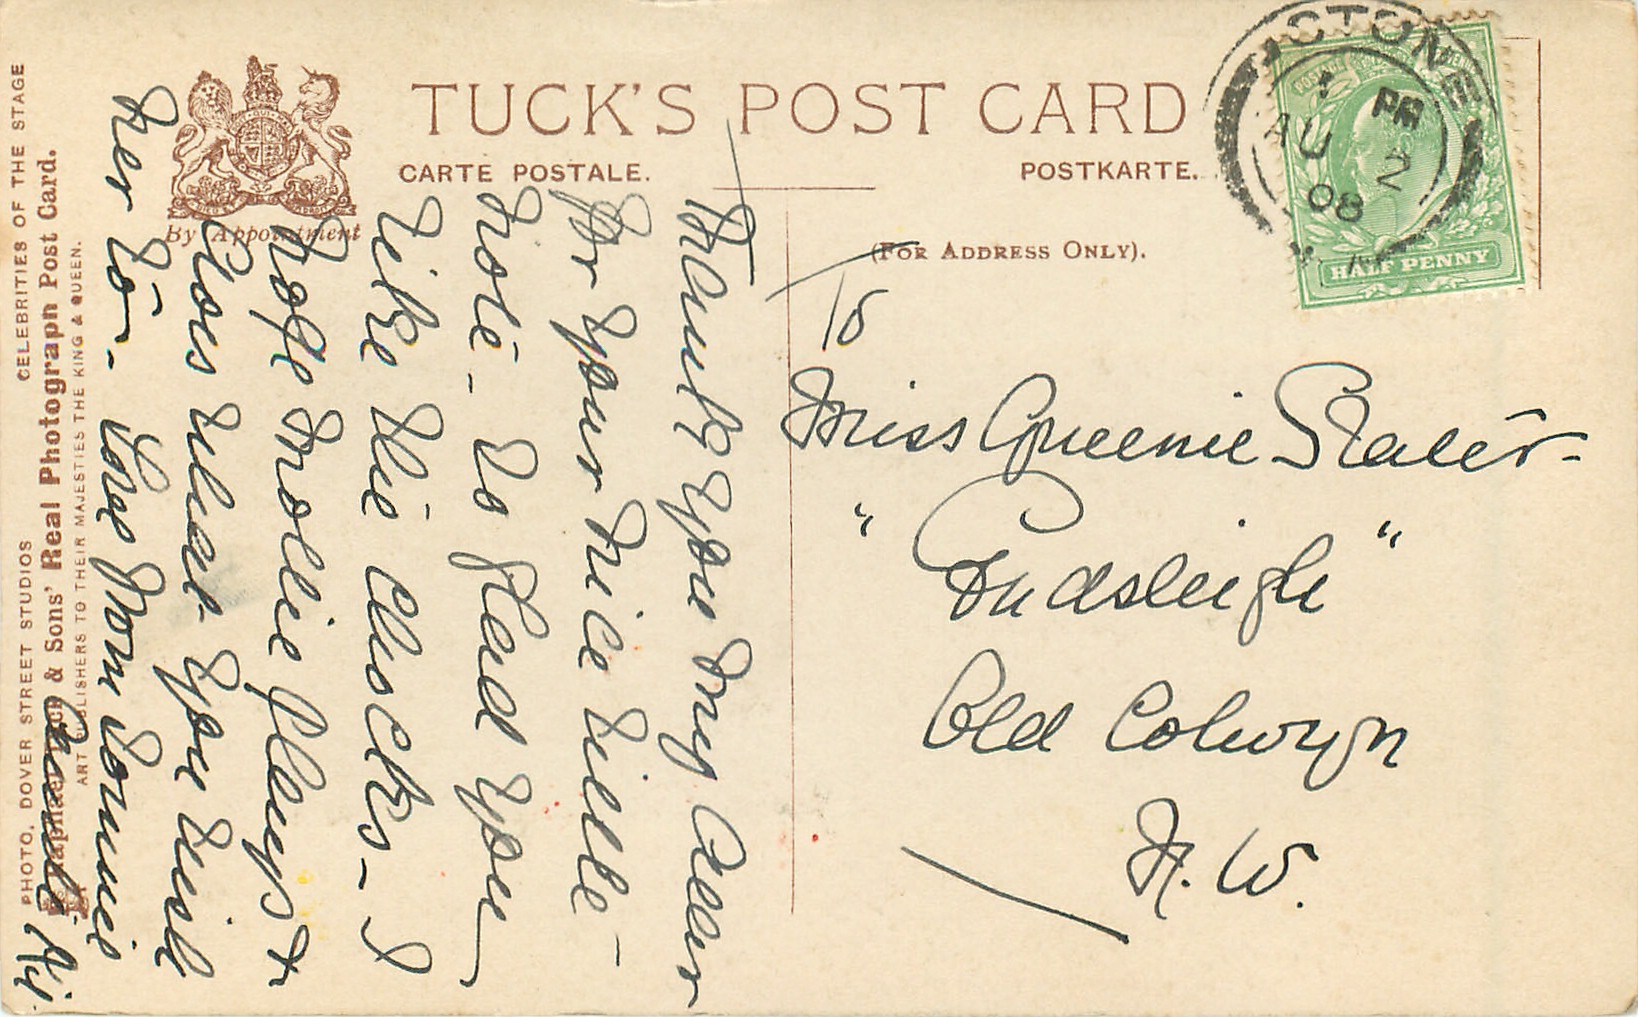 TUCK'S POST CARD
CARTE POSTALE. POSTKARTE.
By Appointment
(FOR ADDRESS ONLY).
HALF PENNY
PM
AU 2
08
CELEBRITIES OF THE STAGE
PHOTO, DOVER STREET STUDIOS
Raphael Tuck & Sons' Real Photograph Post Card.
ART PUBLISHERS TO THEIR MAJESTIES THE KING & QUEEN.
Thank you my dear
for your nice little -
note - So glad you
like the chocks - I
hope Mollie plays &
does what you wish
her to - Love from
To
Miss Queenie Slater -
"Endsleigh"
Old Colwyn
N. W.